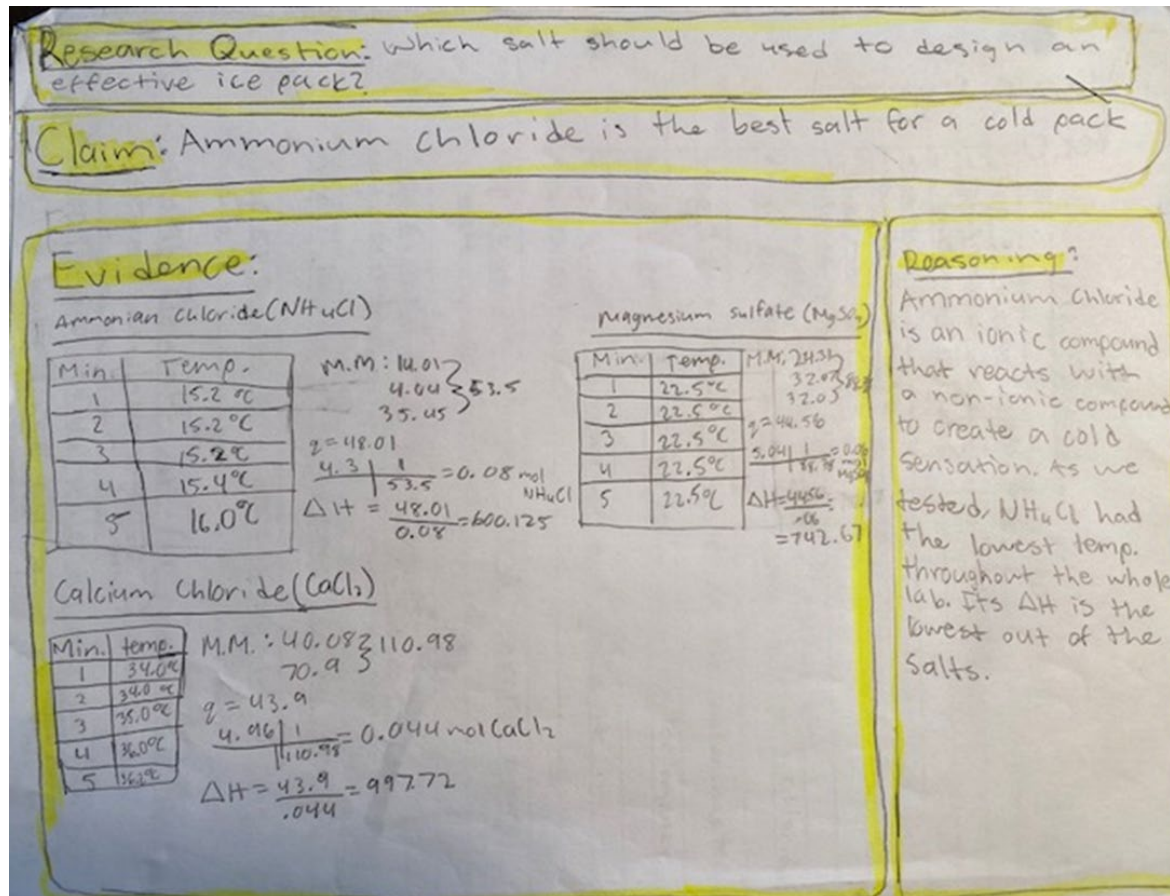 Research Question: Which salt should be used to design an
effective ice pack?
Claim: Ammonium chloride is the best salt for a cold pack
Evidence:
Ammonian chloride (NH4Cl)
Min Temp.
1 15.2 °C
2 15.2 °C
3 15.2 °C
4 15.4 °C
5 16.0 °C
M.M: 14.01
4.04 53.5
35.45
q = 48.01
4.3 | 1
53.5 = 0.08 mol
NH4Cl
ΔH = 48.01 = 600.125
0.08
Magnesium sulfate (MgSO2)
Min. Temp.
1 22.5°C
2 22.5°C
3 22.5°C
4 22.5°C
5 22.5°C
M.M. 24.31
32.07
32.0
q = 44.56
5.04 | 1 = 0.06
mol
ΔH = 44.56 =
.06
= 742.67
Calcium Chloride (CaCl2)
Min. temp.
1 34.0°C
2 34.0 °C
3 35.0°C
4 36.0°C
5 36.2°C
M.M.: 40.08 110.98
70.9
q = 43.9
4.96 | 1
110.98 = 0.044 mol CaCl2
ΔH = 43.9 = 997.72
.044
Reasoning:
Ammonium Chloride
is an ionic compound
that reacts with
a non-ionic compound
to create a cold
sensation. As we
tested, NH4Cl had
the lowest temp.
throughout the whole
lab. Its ΔH is the
lowest out of the
salts.